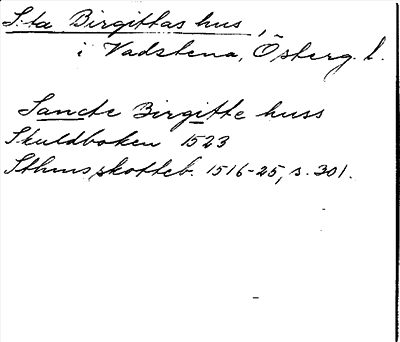 S:ta Birgittas hus,
i Vadstena, Österg. l.
Sancte Birgitte huss
Skuldboken 1523
Sthms skotteb. 1516-25, s. 301.